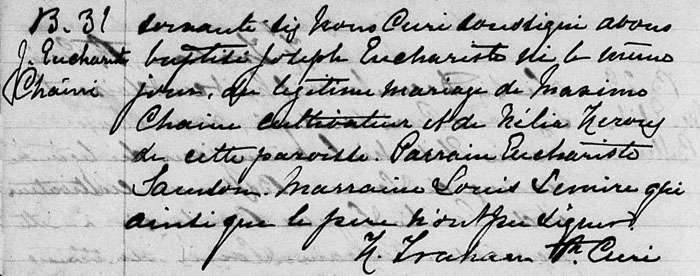 B. 31
J. Euchariste
Chainé
soixante six Nous Curé soussigné avons
baptisé Joseph Euchariste né le même
jour, du légitime mariage de Maxime
Chainé cultivateur et de Nélia
de cette paroisse. Parrain Euchariste
Samson. Marraine Louis Lemire qui
ainsi que le père n'ont pu signer.
N. Trahan Ptr. Curé